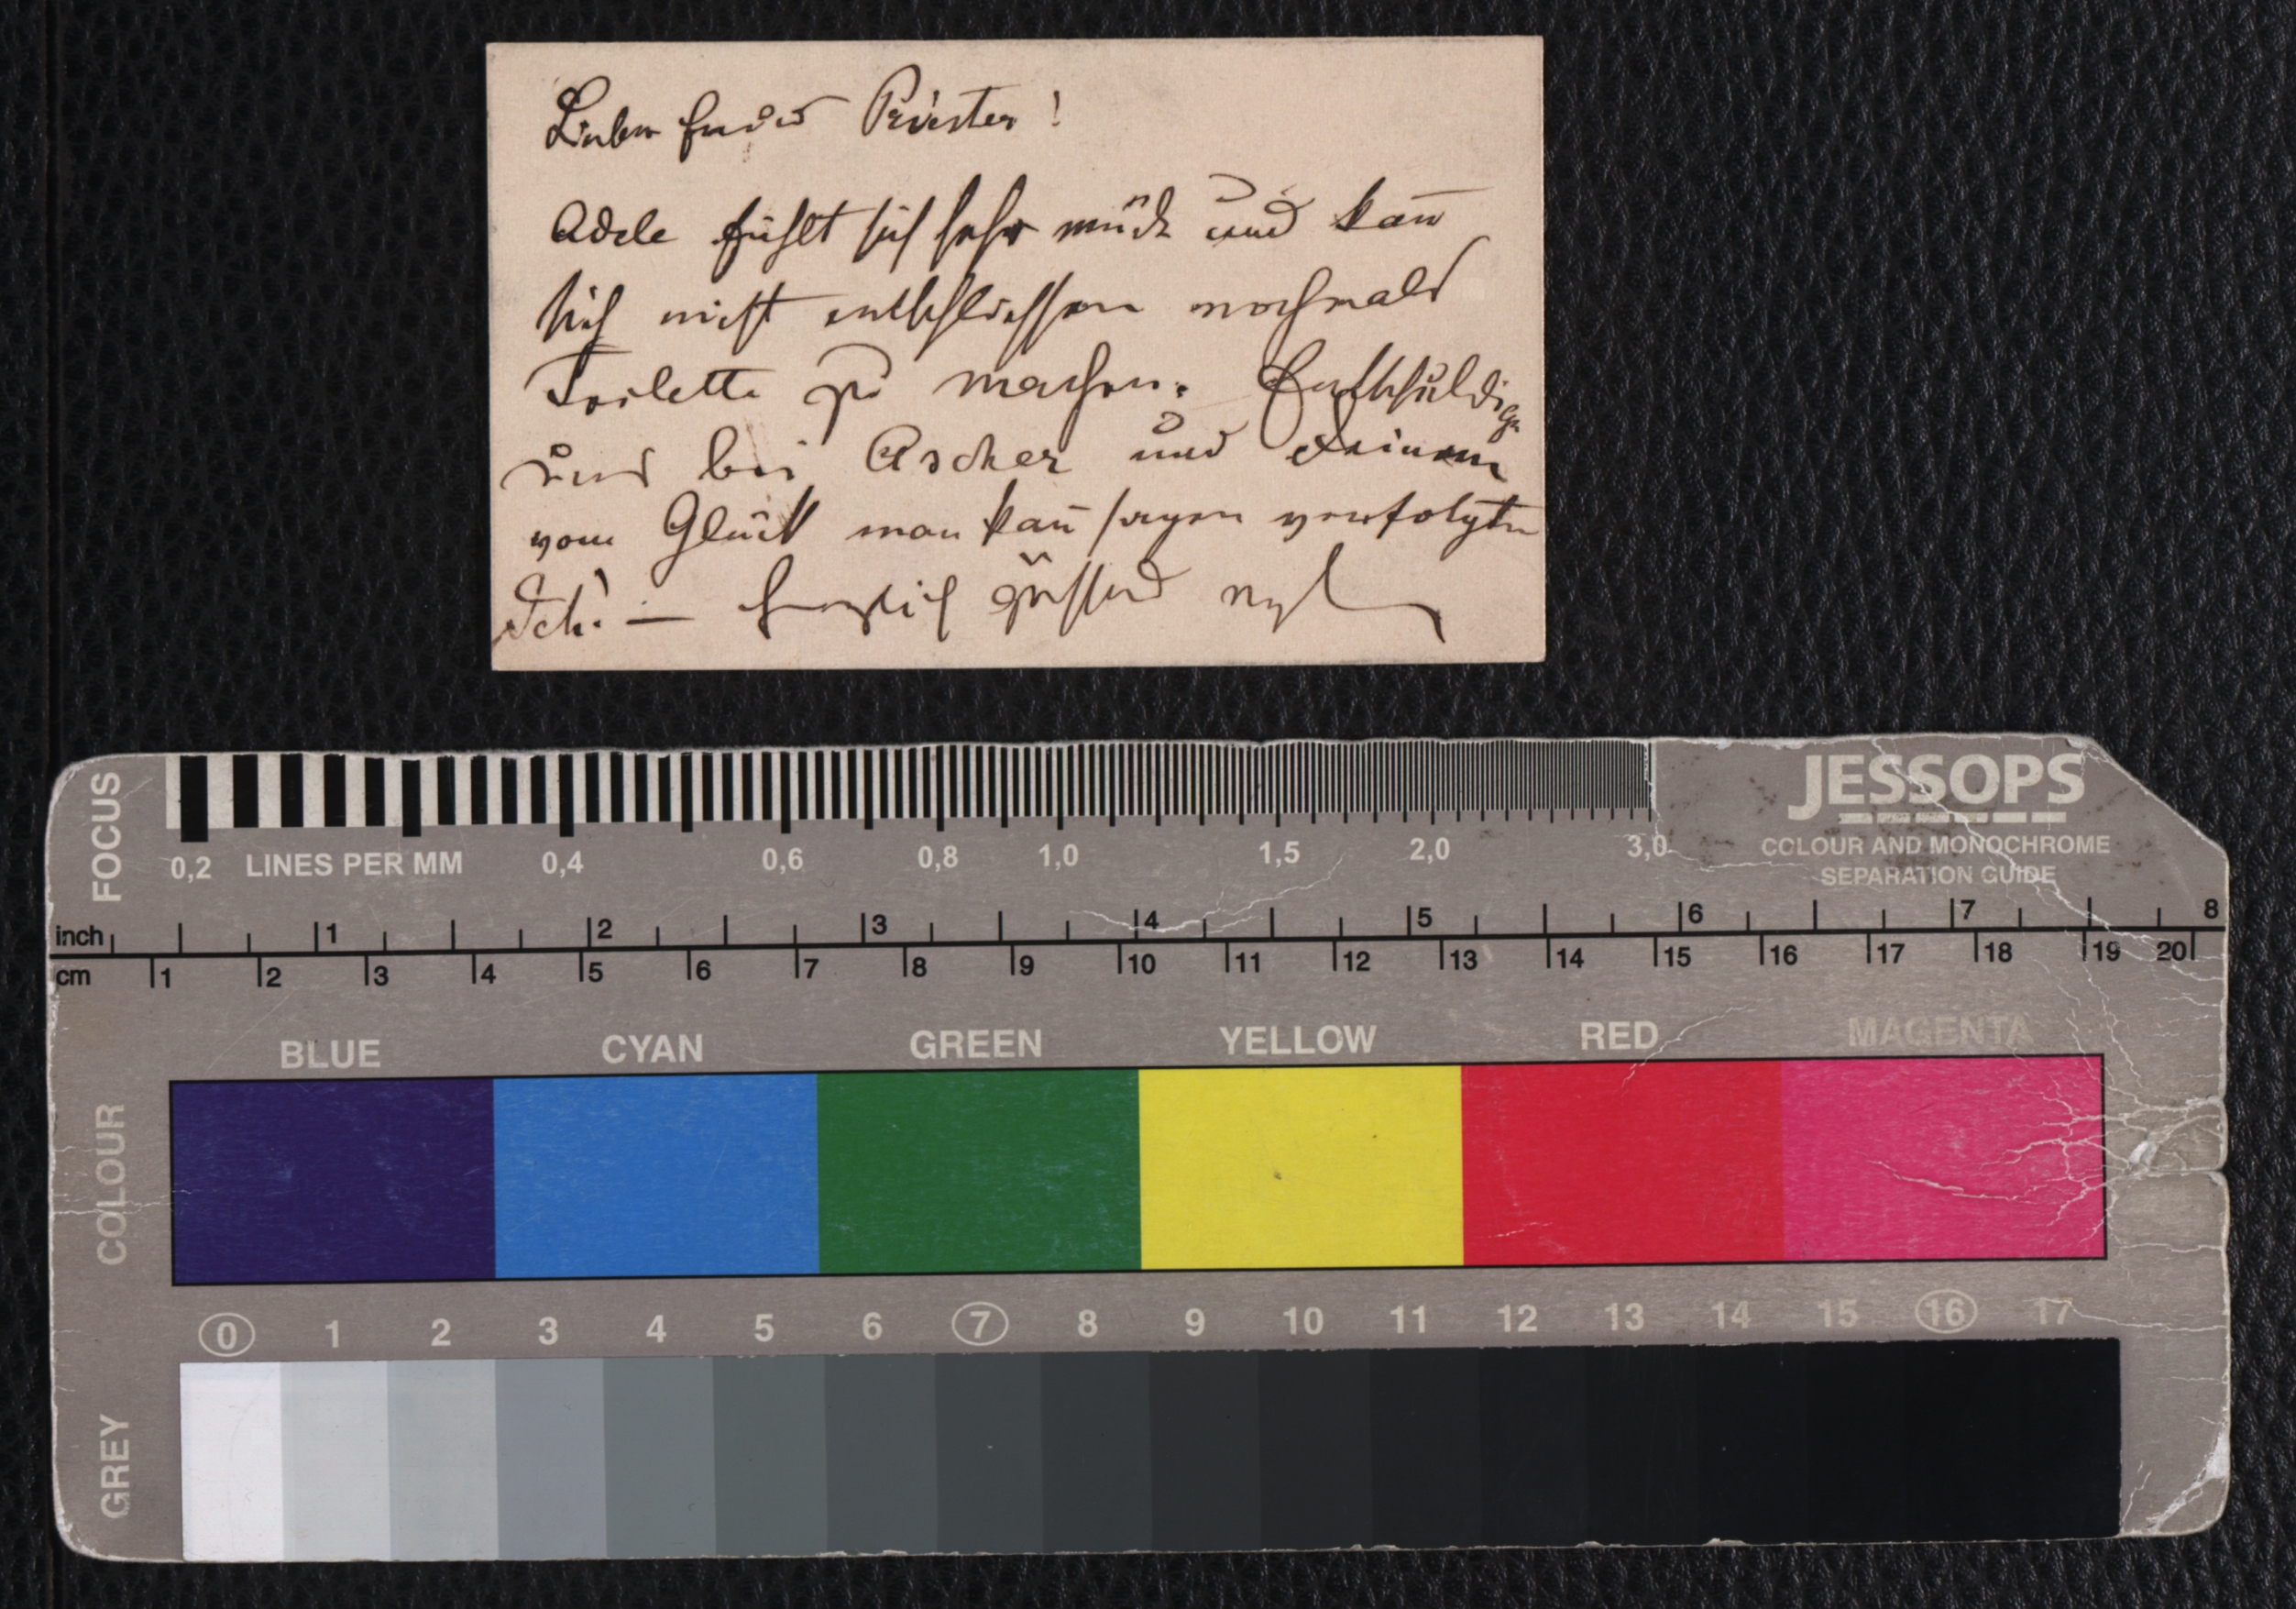 Lieber Freund Priester!
Adele fühlt sich sehr müde und kan̄
sich nicht entschliessen nochmals
Toilette zu machen. Entschuldige
uns bei Ascher und Deinem
vom Glück man kan̄ sagen verfolgten
Sch. — herzlich grüssend
FOCUS
0,2 LINES PER MM 0,4 0,6 0,8 1,0 1,5 2,0 3,0
JESSOPS
COLOUR AND MONOCHROME
SEPARATION GUIDE
inch 1 2 3 4 5 6 7 8
cm 1 2 3 4 5 6 7 8 9 10 11 12 13 14 15 16 17 18 19 20
COLOUR
BLUE CYAN GREEN YELLOW RED MAGENTA
GREY
0 1 2 3 4 5 6 7 8 9 10 11 12 13 14 15 16 17